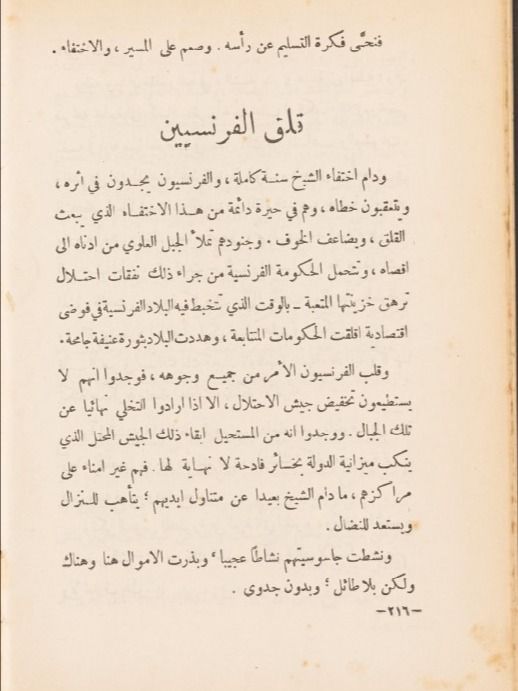 فنحَّى فكرة التسليم عن رأسه . وصمم على المسير ، والاختفاء .
قلق الفرنسيين
ودام اختفاء الشيخ سنة كاملة ، والفرنسيون يجدون في اثره ،
ويتعقبون خطاه ، وهم في حيرة دائمة من هذا الاختفاء الذي يبعث
القلق ، ويضاعف الخوف . وجنودهم تملأ الجبل العلوي من ادناه الى
اقصاه ، وتتحمل الحكومة الفرنسية من جراء ذلك نفقات احتلال
ترهق خزينتها المتعبة – بالوقت الذي تتخبط فيه البلاد الفرنسية في فوضى
اقتصادية اقلقت الحكومات المتتابعة ، وهددت البلاد بثورة عنيفة جامحة .
وقلب الفرنسيون الأمر من جميع وجوهه ، فوجدوا انهم لا
يستطيعون تخفيض جيش الاحتلال ، الا اذا ارادوا التخلي نهائيا عن
تلك الجبال . ووجدوا انه من المستحيل ابقاء ذلك الجيش المحتل الذي
ينكب ميزانية الدولة بخسائر فادحة لا نهاية لها . فهم غير امناء على
مراكزهم ، ما دام الشيخ بعيدا عن متناول ايديهم ؛ يتأهب للنزال
ويستعد للنضال .
ونشطت جاسوسيتهم نشاطًا عجيبا ؛ وبذرت الاموال هنا وهناك
ولكن بلا طائل ؛ وبدون جدوى .
–٢١٦–